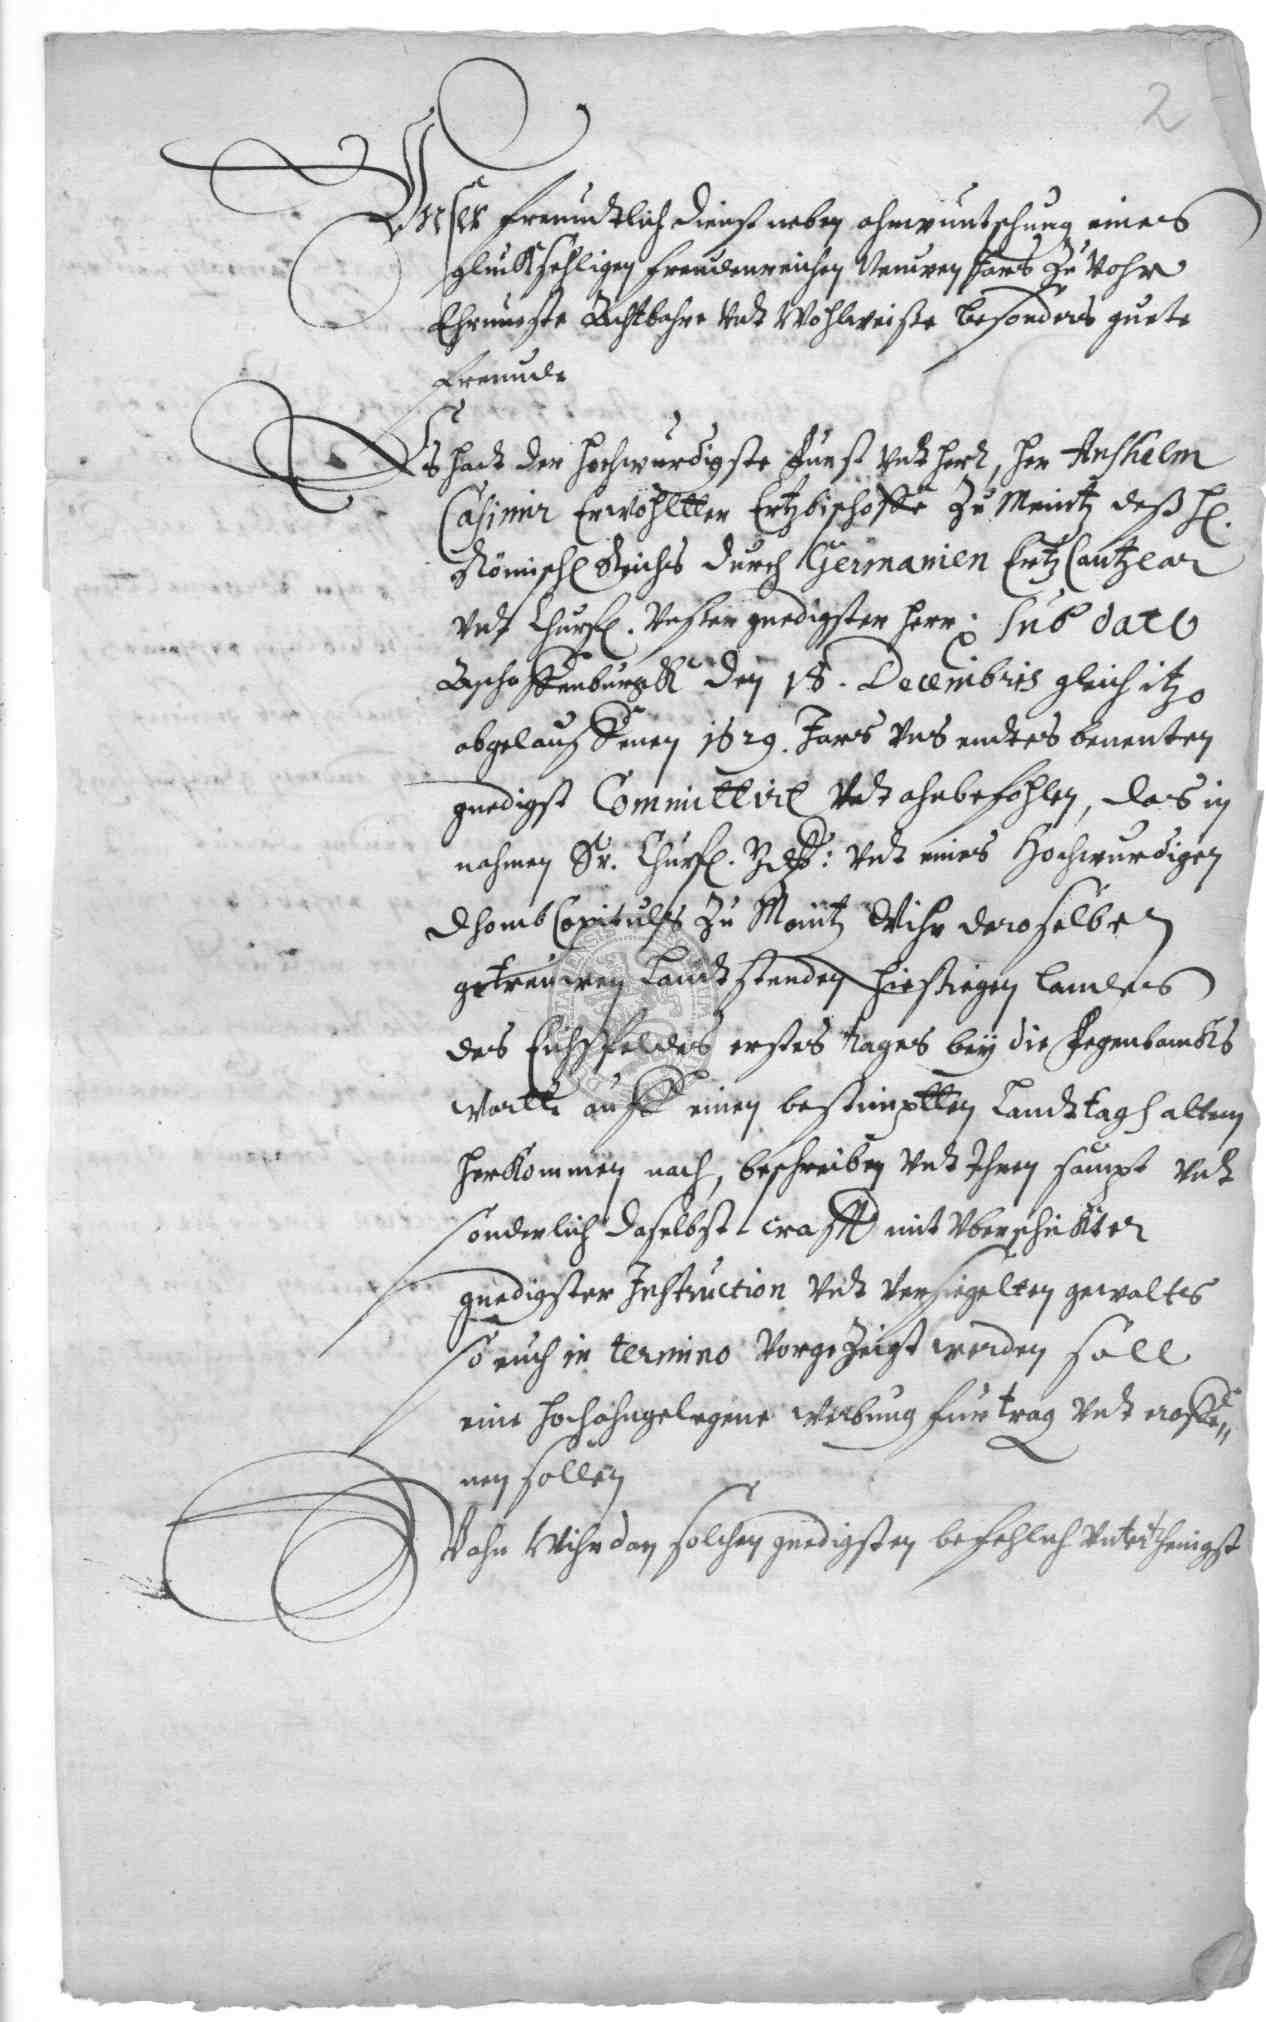 2
Unser freundtlich dienst neben ahnwuntschung eines
gluckseeligen freudenreichen Neuwen Jars zu vohr
Ehrnueste Achtbahre vndt Wohlweiße besonders guete
freunde
Es hadt der hochwurdigste Furst vndt herr, her Anshelm
Casimir Erwöhltter Ertzbischoffe zu Meintz deß hl.
Römischl Reichs durch Germanien ErtzCantzlar
vndt Churfl. vnßer gnedigster herr: sub dato
Aschaffenburgk den 18. Decembris gleich itzo
abgelauffenen 1629. Jars vns endtes benenten
gnedigst Committirt vndt ahnbefohlen, das in
nahmen Sr. Churfl. Gdl: vndt eines Hochwurdigen
DhombCapituls zu Maintz Wihr deroselben
getreuwen Landtstenden hießiegen landes
des Eichsfeldes erstes tages bey die Jegenbancks
Wartte auff einen bestimptten Landttagh altem
herkommen nach, beschreiben vndt Ihnen sampt vndt
sonderlich daselbst crafft mit vberschickter
gnedigster Instruction vndt versiegelten gewaltes
so euch in termino vorgezeigt werden soll
eine hochahngelegene werbung furtrag vndt eroffe„
nen sollen
Wahn Wihr dan solchen gnedigsten befehlich vnterthenigst